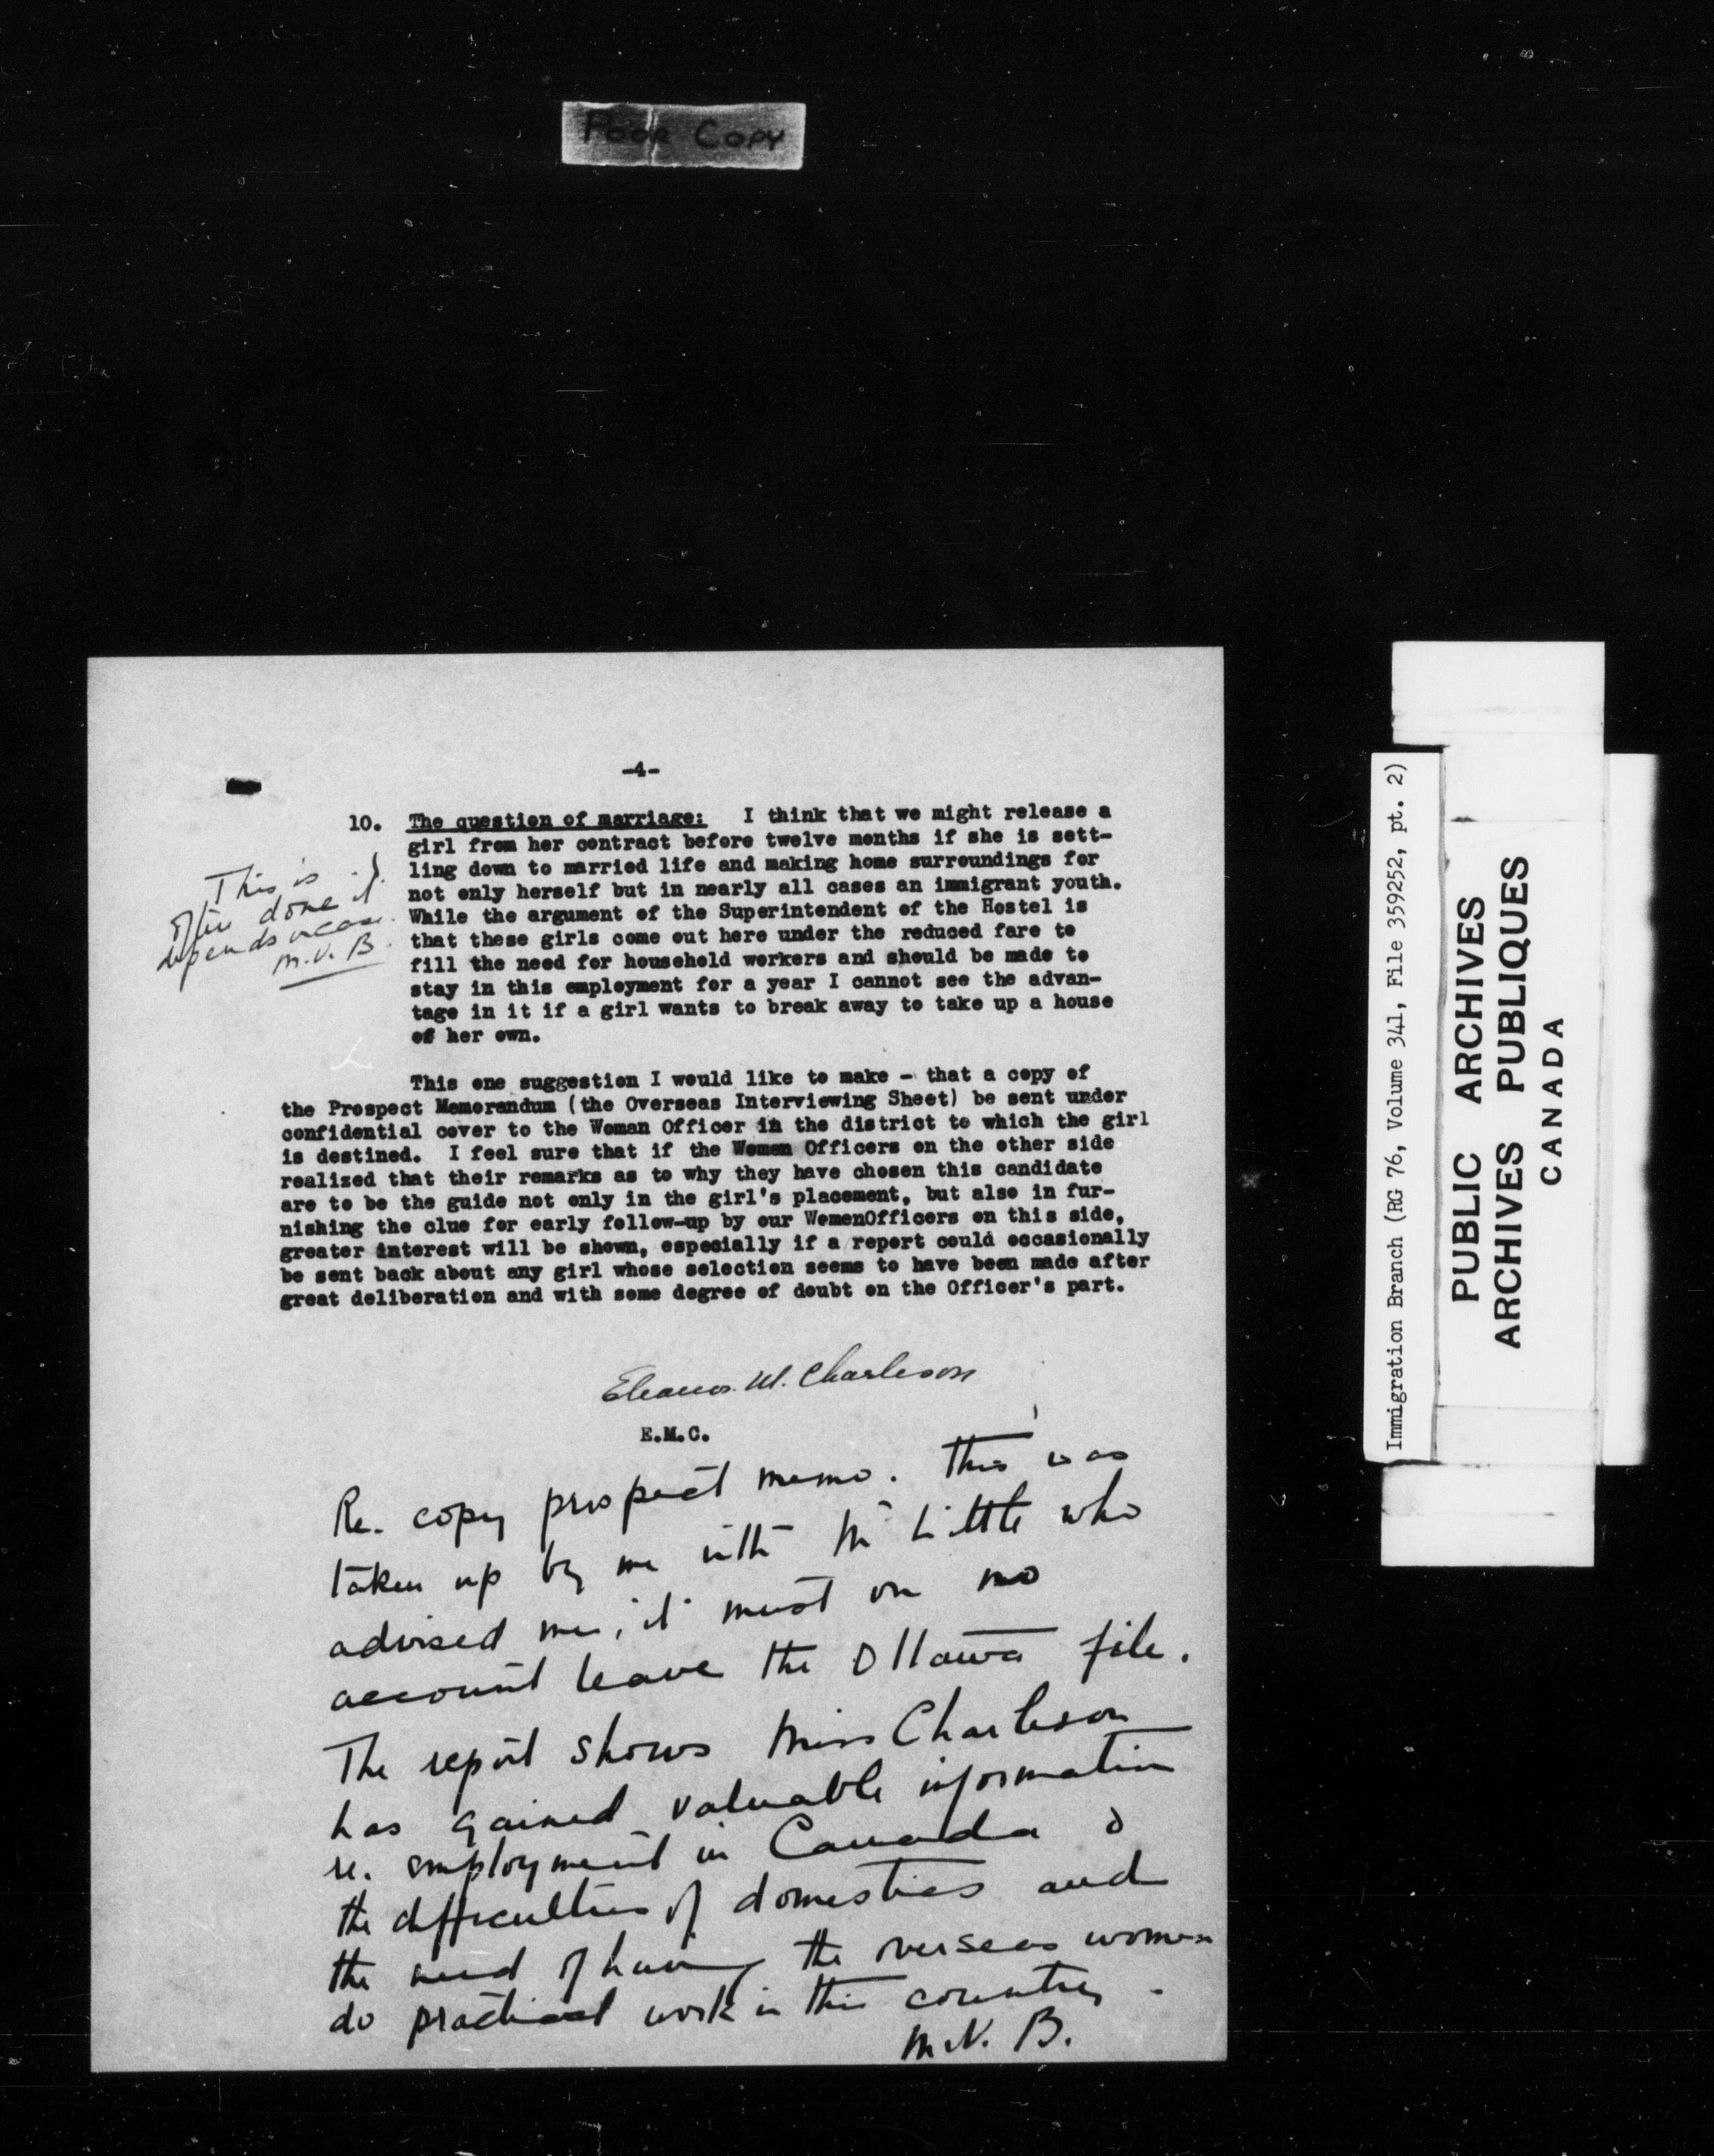 POOR COPY
-4-
10. The question of marriage: I think that we might release a
girl from her contract before twelve months if she is sett-
ling down to married life and making home surroundings for
not only herself but in nearly all cases an immigrant youth.
While the argument of the Superintendent of the Hostel is
that these girls come out here under the reduced fare to
fill the need for household workers and should be made to
stay in this employment for a year I cannot see the advan-
tage in it if a girl wants to break away to take up a house
of her own.
This is
often done it
depends on case.
M.V.B.
This one suggestion I would like to make - that a copy of
the Prospect Memorandum (the Overseas Interviewing Sheet) be sent under
confidential cover to the Woman Officer in the district to which the girl
is destined. I feel sure that if the Women Officers on the other side
realized that their remarks as to why they have chosen this candidate
are to be the guide not only in the girl's placement, but also in fur-
nishing the clue for early follow-up by our WomenOfficers on this side,
greater interest will be shown, especially if a report could occasionally
be sent back about any girl whose selection seems to have been made after
great deliberation and with some degree of doubt on the Officer's part.
Eleanor M. Charleson
E.M.C.
Re. copy prospect memo. This was
taken up by me with Mr Little who
advised me, it must on no
account leave the Ottawa file.
The report shows Miss Charleson
has gained valuable information
re. employment in Canada &
the difficulties of domestics and
the need of having the overseas women
do practical work in this country.
M.V.B.
Immigration Branch (RG 76, Volume 341, File 359252, pt. 2)
PUBLIC ARCHIVES
ARCHIVES PUBLIQUES
CANADA